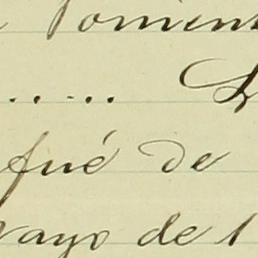 foment
..... L
fué de
mayo de 1